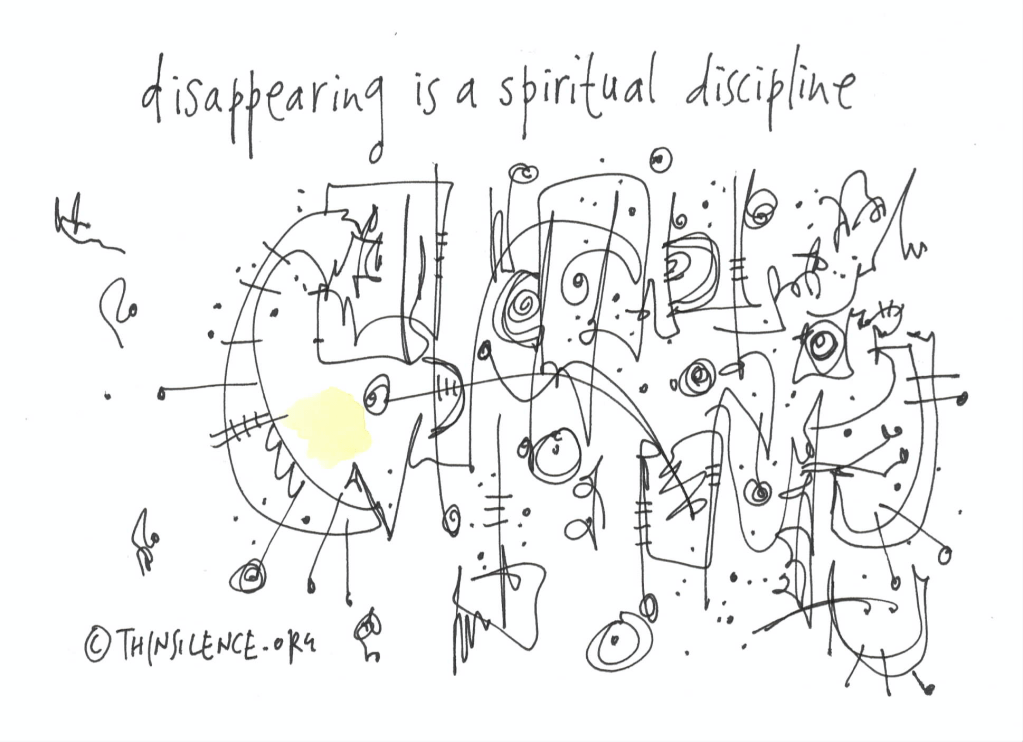 disappearing is a spiritual discipline
© THINSILENCE.ORG